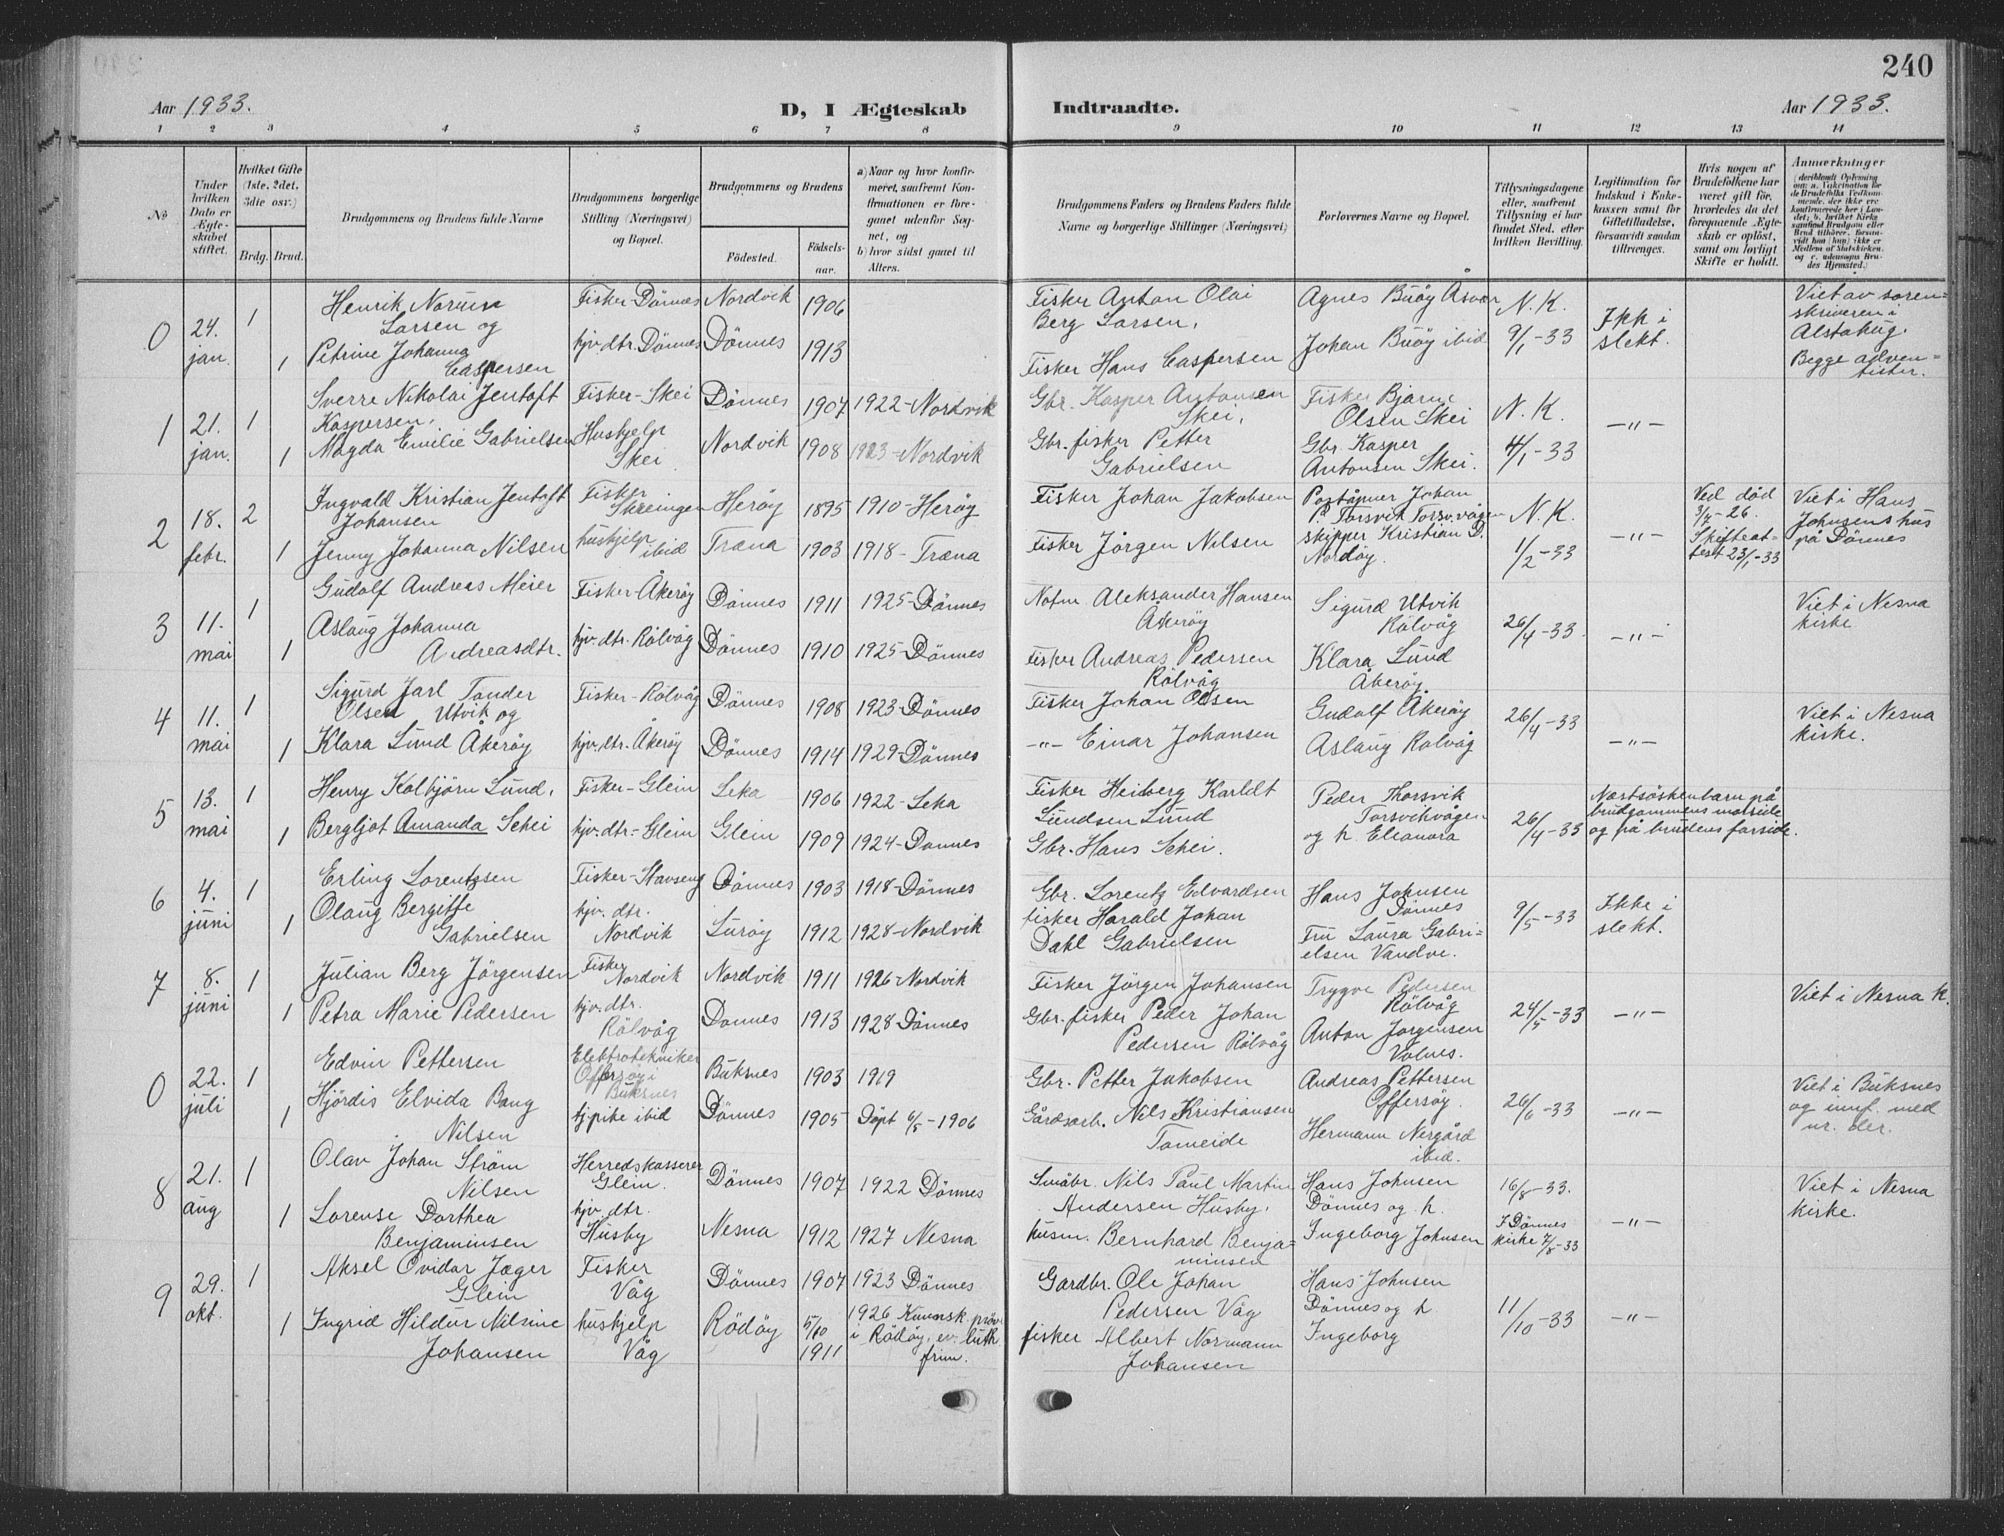 240
Aar 1933.
D, I Ægteskab Indtraadte.
Aar 1933.
1 2 3 4 5 6 7 8 9 10 11 12 13 14
No
Under hvilken Dato er Ægteskabet stiftet.
Hvilket Gifte (1ste, 2det, 3die osv.)
Brdg. Brud.
Brudgommens og Brudens fulde Navne
Brudgommens borgerlige Stilling (Næringsvei) og Bopæl.
Brudgommens og Brudens
Födested. Födselsaar.
a) Naar og hvor konfirmeret, saafremt Konfirmationen er foregaaet udenfor Sognet, og
b) hvor sidst gaaet til Alters.
Brudgommens Faders og Brudens Faders fulde Navne og borgerlige Stillinger (Næringsvei)
Forlovernes Navne og Bopæl.
Tillysningsdagene eller, saafremt Tillysning ei har fundet Sted, efter hvilken Bevilling.
Legitimation for Indskud i Enkekassen samt for Giftetilladelse, forsaavidt saadan tiltrænges.
Hvis nogen af Brudefolkene har været gift før, hvorledes da det foregaaende Ægteskab er oplöst, samt om lovligt Skifte er holdt.
Anmærkninger
0 24. jan. 1 Henrik Norum Larsen og Fisker-Dönnes Nordvik 1906 Fisker Anton Olai Berg Larsen, Agnes Buöy Åsvær N.K. 9/1-33 Ikk i slekt. Viet av sorenskriveren i Alstahug. Begge adventister.
1 Petrine Johanna Caspersen hjv.dtr. Dönnes Dönnes 1913 Fisker Hans Caspersen Johan Buöy ibid
1 21. jan. 1 Sverre Nikolai Jentoft Kaspersen, Fisker-Skei Dönnes 1907 1922-Nordvik Gbr. Kasper Antonsen Skei, Fisker Bjarne Olsen Skei N.K. 4/1-33 -"-
1 Magda Emilie Gabrielsen Hushjelp Skei Nordvik 1908 1923-Nordvik Gbr. fisker Petter Gabrielsen Gbr. Kasper Antonsen Skei.
2 18. febr. 2 Ingvald Kristian Jentoft Johansen Fisker Heröy 1895 1910-Heröy Fisker Johan Jakobsen Johan P. Torsvik Torsvvågen N.K. 1/2-33 -"- Ved död 3/7-26. Skifteattest 23/1-33 Viet i Hans Johnsens hus på Dönnes
1 Jenny Johanna Nilsen hushjelp ibid Træna 1903 1918-Træna Fisker Jörgen Nilsen skipper Kristian Nordöy.
3 11. mai 1 Gudolf Andreas Meier Fisker-Åkeröy Dönnes 1911 1925-Dönnes Aleksander Hansen Åkeröy Sigurd Utvik Rölvåg 26/4-33 -"- Viet i Nesna kirke
1 Aslaug Johanna Andreasdtr. hjv.dtr. Rölvåg Dönnes 1910 1925-Dönnes Fisker Andreas Pedersen Rölvåg Klara Lund Åkeröy
4 11. mai 1 Sigurd Jarl Tander Olsen Utvik og Fisker-Rölvåg Dönnes 1908 1923-Dönnes Fisker Johan Olsen Gudolf Åkeröy 26/4-33 -"- Viet i Nesna kirke.
1 Klara Lund Åkeröy hjv.dtr. Åkeröy Dönnes 1914 1929-Dönnes -"- Einar Johansen Aslaug Rölvåg
5 13. mai 1 Henry Kolbjörn Lund, Fisker-Glein Leka 1906 1922-Leka Fisker Heiberg Karldt Lundsen Lund Peder Thorsvik Torsvikvågen 26/4-33 Nærtsöskenbarn på brudgommens morside og på brudens farside.
1 Bergljot Amanda Schei hjv.dtr-Glein Glein 1909 1924-Dönnes Gbr-Hans Schei. og h. Eleanora
6 4. juni 1 Erling Lorentzsen Fisker-Stavseng Dönnes 1903 1918-Dönnes Gbr. Lorentz Edvardsen Hans Johnsen Dönnes 9/5-33 Ikke i slekt.
1 Olaug Bergitte Gabrielsen hjv.dtr. Nordvik Luröy 1912 1928-Nordvik fisker Harald Johan Dahl Gabrielsen Fru Laura Gabrielsen Vandve.
7 8. juni 1 Julian Berg Jörgensen Fisker Nordvik Nordvik 1911 1926-Nordvik Fisker Jörgen Johansen Trygve Pedersen Rölvåg 24/5-33 -"- Viet i Nesna k.
1 Petra Marie Pedersen hjv.dtr. Rölvåg Dönnes 1913 1928 Dönnes Gbr. fisker Peder Johan Pedersen Rölvåg Anton Jörgensen
0 22. juli 1 Edvin Pettersen Elektrotekniker Offersöy i Buksnes Buksnes 1903 1919 Gbr. Petter Jakobsen Andreas Pettersen Offersöy. 26/6-33 -"- Viet i Buksnes og innf. med nr. der.
1 Hjördis Elvida Bang Nilsen tjpike ibid Dönnes 1905 Döpt 6/5-1906 Gårdsarb. Nils Kristiansen Tomeide Hermann Nergård ibid.
8 21. aug 1 Olav Johan Ström Nilsen Herredskasserer Glein. Dönnes 1907 1922 Dönnes Småbr. Nils Paul Martin Andersen Husby. Hans Johnsen Dönnes og h. 16/8-33. -"- Viet i Nesna kirke.
1 Lorense Dorthea Benjaminsen hjv.dtr. Husby Nesna 1912 1927 Nesna husm. Bernhard Benjaminsen Ingeborg Johnsen I Dönnes kirke 7/8-33
9 29. okt. 1 Aksel Ovidar Jæger Glein Fisker Våg Dönnes 1907 1923 Dönnes Gårdbr. Ole Johan Pedersen Våg Hans Johnsen Dönnes og h. 11/10-33 -"-
1 Ingrid Hildur Nilsine Johansen hushjelp Våg Rödöy 5/10 1911 1926 Kunnsk. pröve i Rödöy. ev. luth frim. fisker Albert Normann Johansen Ingeborg